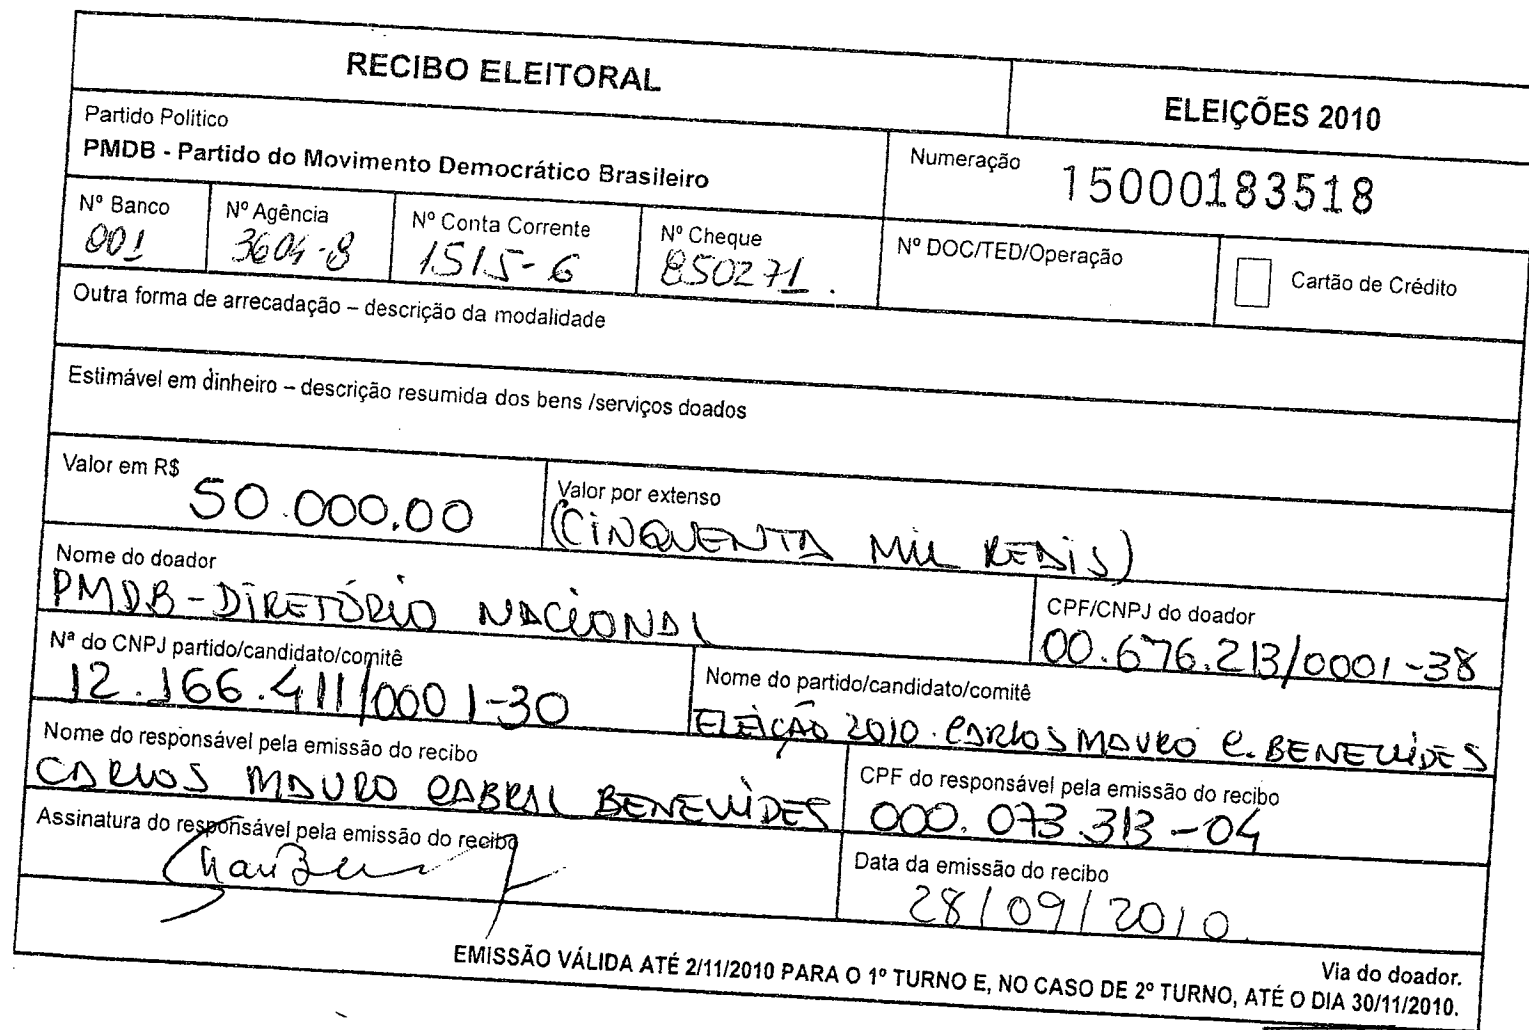 RECIBO ELEITORAL
ELEIÇÕES 2010
Partido Político
PMDB - Partido do Movimento Democrático Brasileiro
Numeração 15000183518
Nº Banco
001
Nº Agência
3604-8
Nº Conta Corrente
1515-6
Nº Cheque
850271.
Nº DOC/TED/Operação
Cartão de Crédito
Outra forma de arrecadação – descrição da modalidade
Estimável em dinheiro – descrição resumida dos bens /serviços doados
Valor em R$
50.000,00
Valor por extenso
(CINQUENTA MIL REAIS)
Nome do doador
PMDB - DIRETÓRIO NACIONAL
CPF/CNPJ do doador
00.676.213/0001-38
Nª do CNPJ partido/candidato/comitê
12.166.411/0001-30
Nome do partido/candidato/comitê
ELEIÇÃO 2010. CARLOS MAURO C. BENEVIDES
Nome do responsável pela emissão do recibo
CARLOS MAURO CABRAL BENEVIDES
CPF do responsável pela emissão do recibo
000.073.313-04
Assinatura do responsável pela emissão do recibo
Data da emissão do recibo
28/09/2010.
Via do doador.
EMISSÃO VÁLIDA ATÉ 2/11/2010 PARA O 1º TURNO E, NO CASO DE 2º TURNO, ATÉ O DIA 30/11/2010.